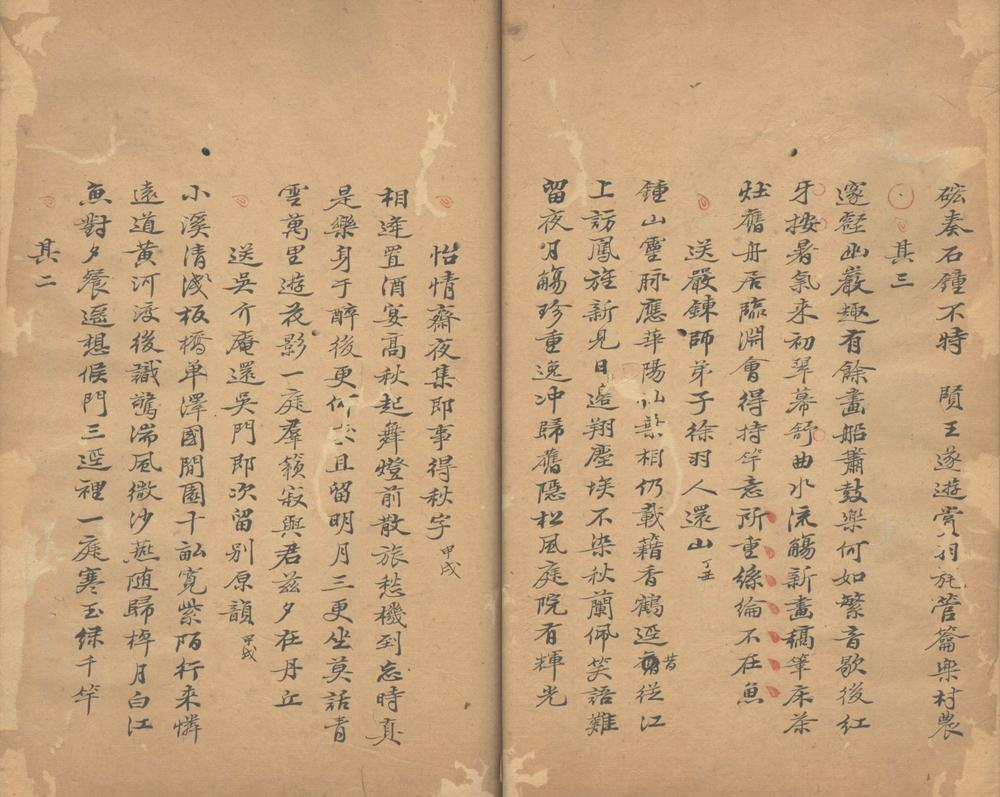 硡奏石鐘不時　賢王遂遊賞羽旄管籥樂村農
其三
邃壑幽巖趣有餘畫船簫鼓樂何如繁音歇後紅
牙按暑氣來初翠幕舒曲水流觴新畫稿筆床茶
灶舊舟居臨淵會得持竿意所重絲綸不在魚
送嚴鍊師弟子徐羽人還山丁丑
鍾山靈脉應華陽仙業相仍載藉香鶴逕昔從江
上訪鳳旌新見日邊翔塵埃不染秋蘭佩笑語難
留夜月觴珍重逸冲歸舊隱松風庭院有輝光
怡情齋夜集即事得秋字甲戌
相逢置酒宴高秋起舞燈前散旅愁機到忘時真
是樂身于醉後更何求且留明月三更坐莫話青
雲萬里遊花影一庭羣籟寂與君茲夕在丹丘
送吳介庵還吳門即次留別原韻甲戌
小溪清淺板橋单澤國閒園十畝寬紫陌行來憐
遠道黃河渡後識驚湍風微沙燕随歸棹月白江
魚對夕餐遥想候門三逕裡一庭寒玉緑千竿
其二